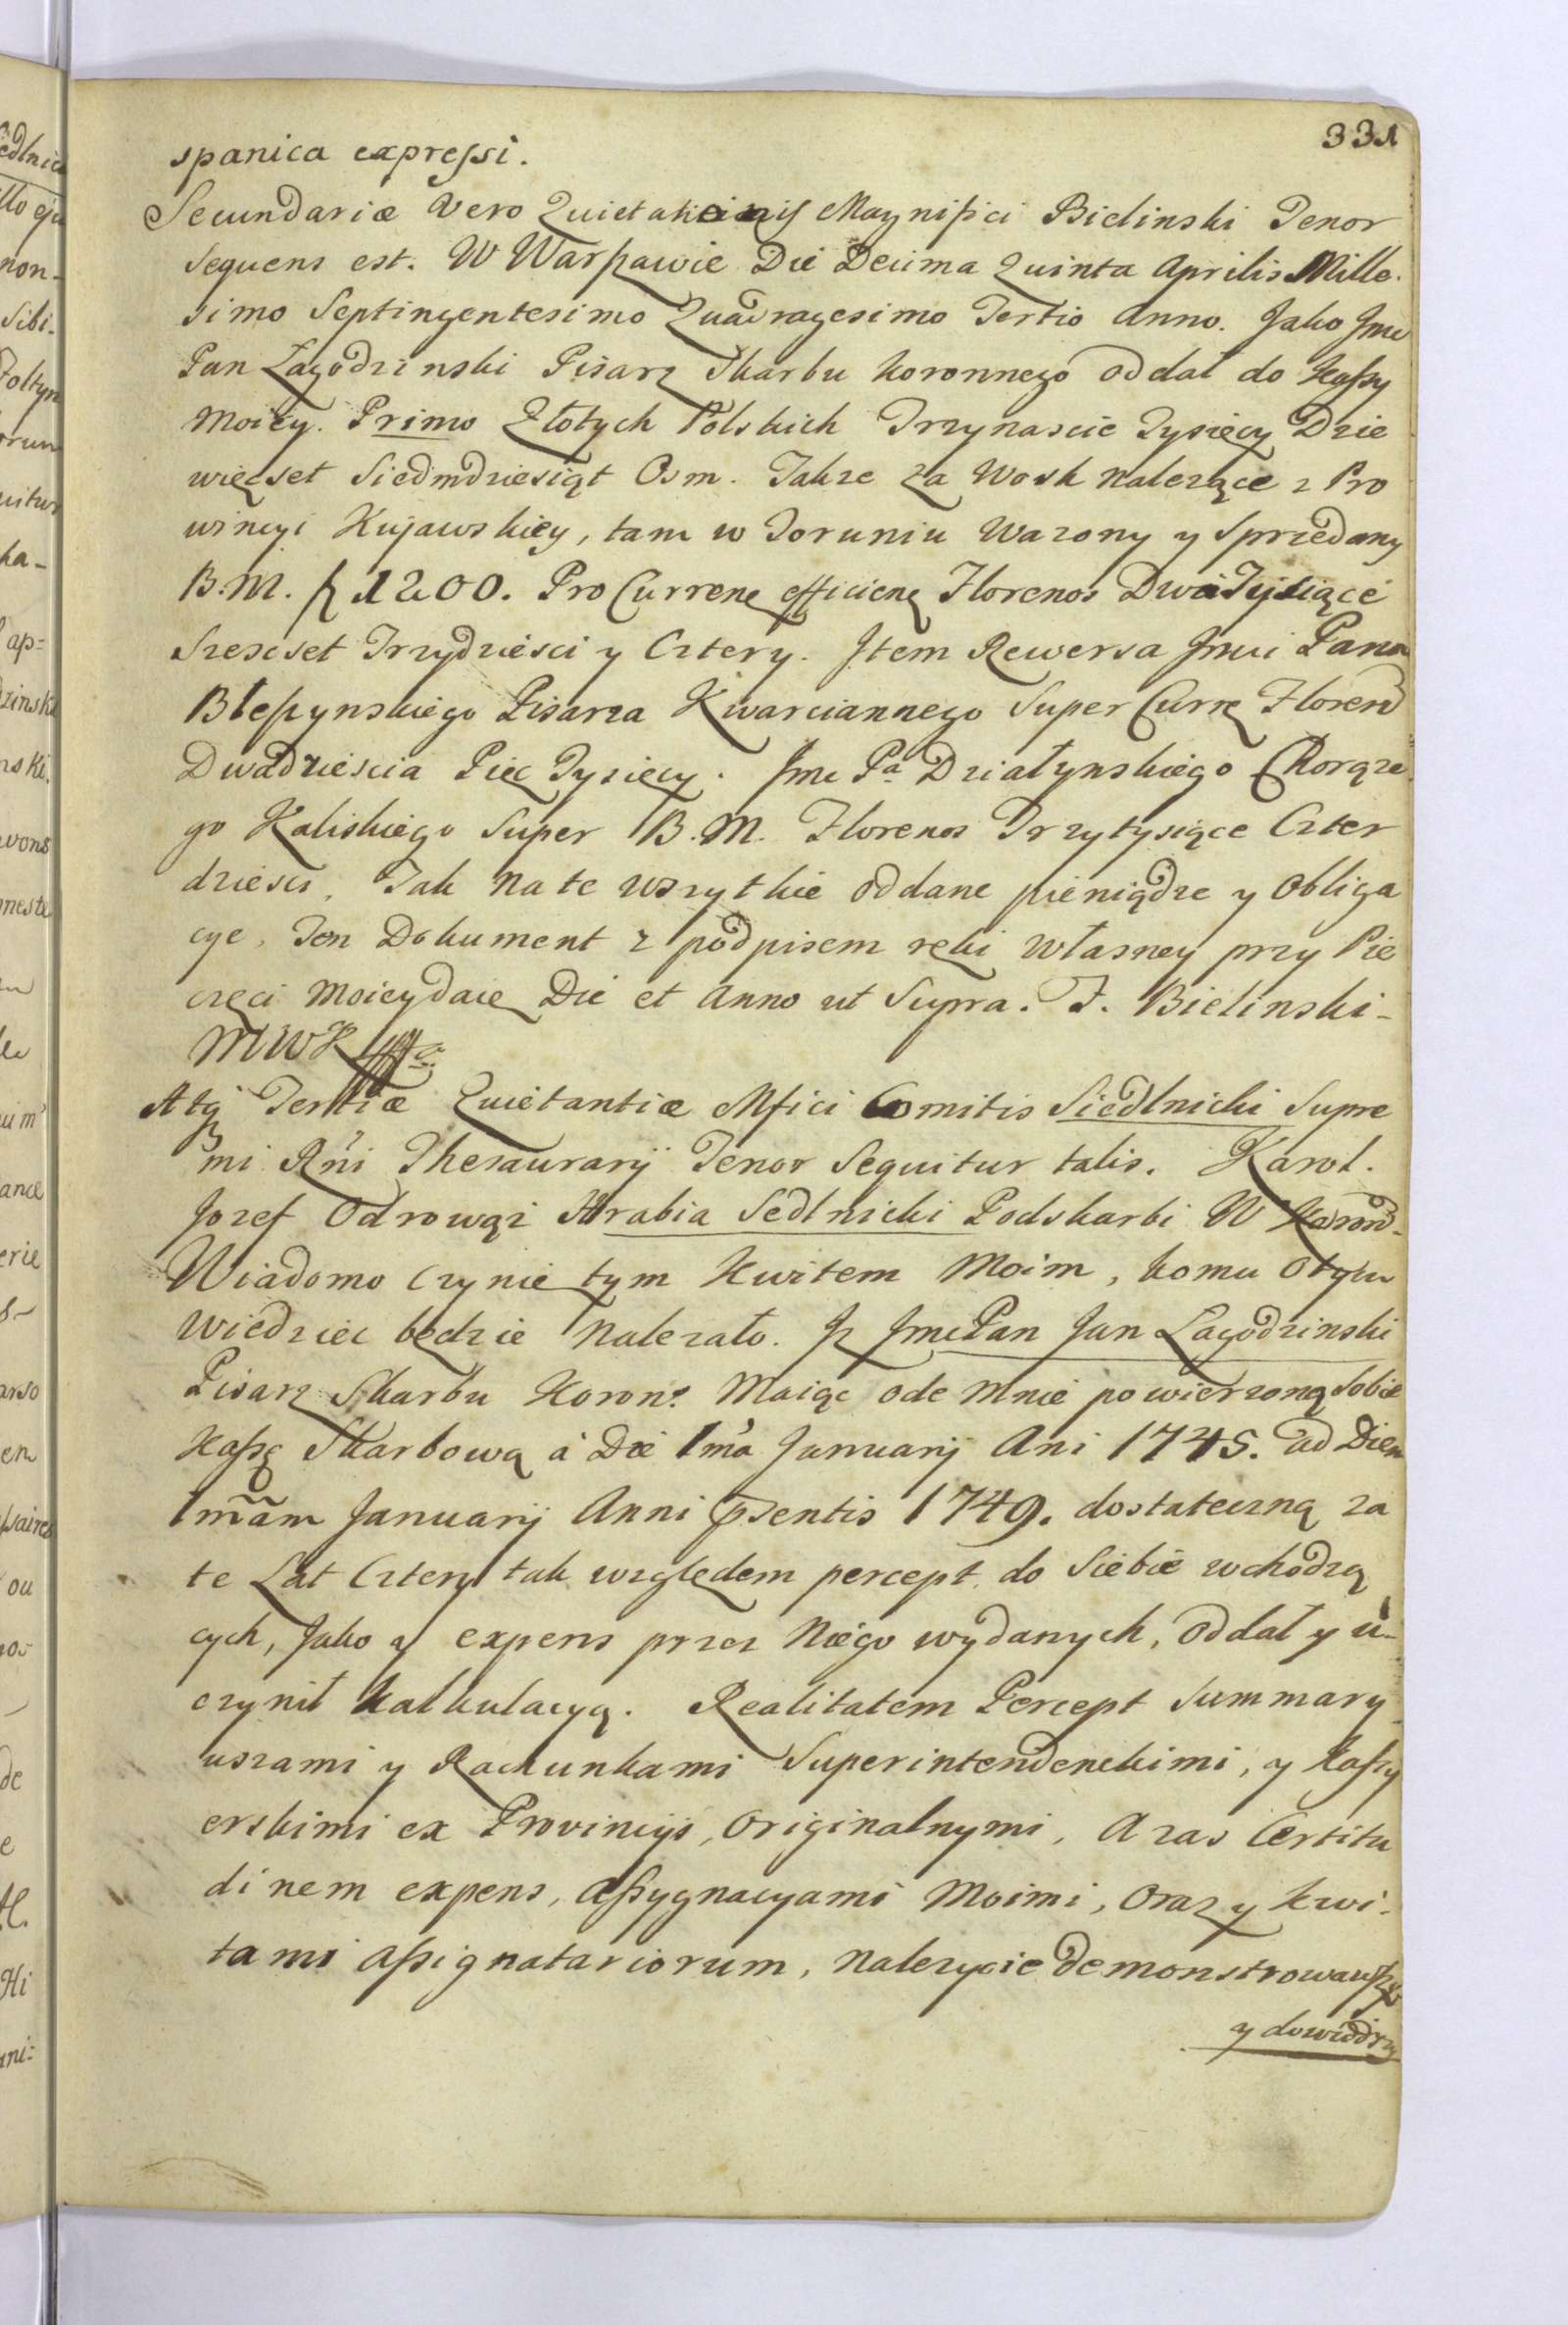 331
spanica expressi.
Secundariæ Vero Quietationis Magnifici Bielinski Tenor
Sequens est. W Warszawie Die Decima Quinta Aprilis Mille-
simo Septingentesimo Quadragesimo Tertio Anno. Jako Jmc
Pan Łagodzinski Pisarz Skarbu Koronnego oddał do Kassy
Moiey. Primo Złotych Polskich Trzynascie Tysięcy Dzie
więcset Siedmdziesiąt Osm. Takze za Wosk nalezące z Pro
wincyi Kujawskiey, tam w Toruniu Wazony y Sprzedany
B.M. f 1200. Pro Curren efficien Florenos Dwa Tysiące
Szescset Trzydziesci y Cztery. Item Rewersa Jmci Pana
Błeszynskiego Pisarza Kwarciannego Super Curr Floren
Dwadziescia Piec Tysięcy. Jmc Pa Działynskiego Chorąze
go Kaliskiego Super B.M. Florenos Trzytysiące Czter
dziesci. Jak na te wszytkie oddane pieniądze y Obliga
cye, Ten Dokument z podpisem ręki własney przy Pie
częci Moiey daię Die et Anno ut Supra. F. Bielinski-
MWK
Atq Tertiæ Quietantiæ Mfici Comitis Siedlnicki Supre
mi Rni Thesaurarij Tenor Sequitur talis. Karol.
Jozef Odrowąz Hrabia Sedlnicki Podskarbi W Koron-
Wiadomo Czynie tym Kwitem Moim, komu o tym
Wiedziec będzie nalezało. Jz Jmc Pan Jan Łagodzinski
Pisarz Skarbu Koron: Maiąc ode mnie powierzoną Sobie
Kassę Skarbową à Die 1ma Januarij Ani 1745. ad Diem
1mam Januarij Anni psentis 1749. dostateczną za
te Lat Cztery tak względem percept do Siebie wchodzą
cych, Jako y expens przez Niego wydanych, Oddał y u-
czynił Kalkulacyą. Realitatem Percept Summary
uszami y Rachunkami Superintendenckimi, y Kassy
erskimi ex Provincijs, Originalnymi, A zas Certitu
dinem expens, Assygnacyami Moimi, Oraz y kwi-
tami Assignatariorum, nalezycie demonstrowawszy
y dowiodszy